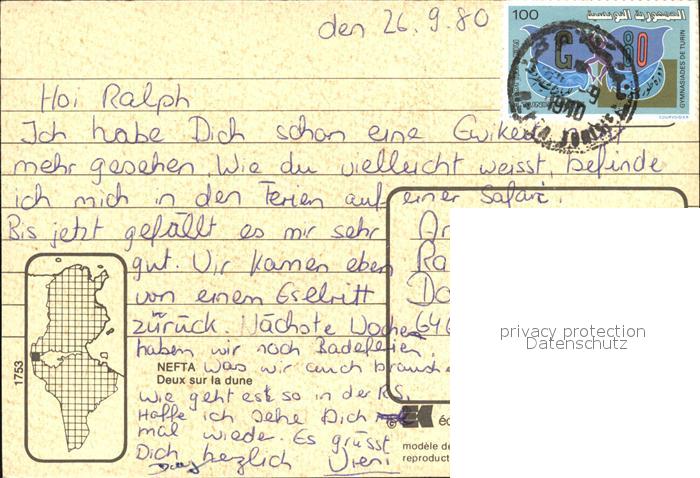 den 26.9.80
100
الجمهورية التونسية
G 80
GYMNASIADES DE TURIN
COURVOISIER
Hoi Ralph
Ich habe Dich schon eine Ewikeit nit
mehr gesehen. Wie du vielleicht weisst, befinde
ich mich in den Ferien auf einer Safari.
Bis jetzt gefällt es mir sehr
gut. Wir kamen eben
von einem Eselritt
zurück. Nächste Woche
haben wir noch Badeferien,
was wir auch brauche
Wie geht es so in der RS,
Hoffe ich sehe Dich
mal wieder. Es grüsst
Dich herzlich Vreni
Ra
Do
646
1753
NEFTA
Deux sur la dune
éd
modèle dé
reproduct
privacy protection
Datenschutz